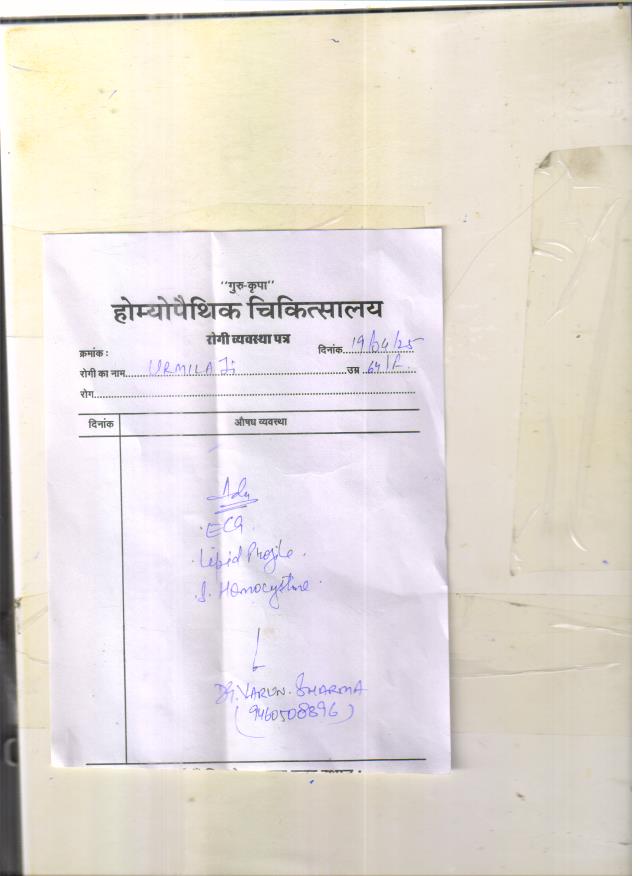 "गुरु-कृपा"
होम्योपैथिक चिकित्सालय
रोगी व्यवस्था पत्र
क्रमांक : दिनांक 19/04/25
रोगी का नाम URMILA Ji उम्र 64/F.
रोग
दिनांक औषध व्यवस्था
Adv
· ECG.
· Lipid Profile.
· S. Homocystine.
Dr. VARUN. SHARMA
(9460508896)